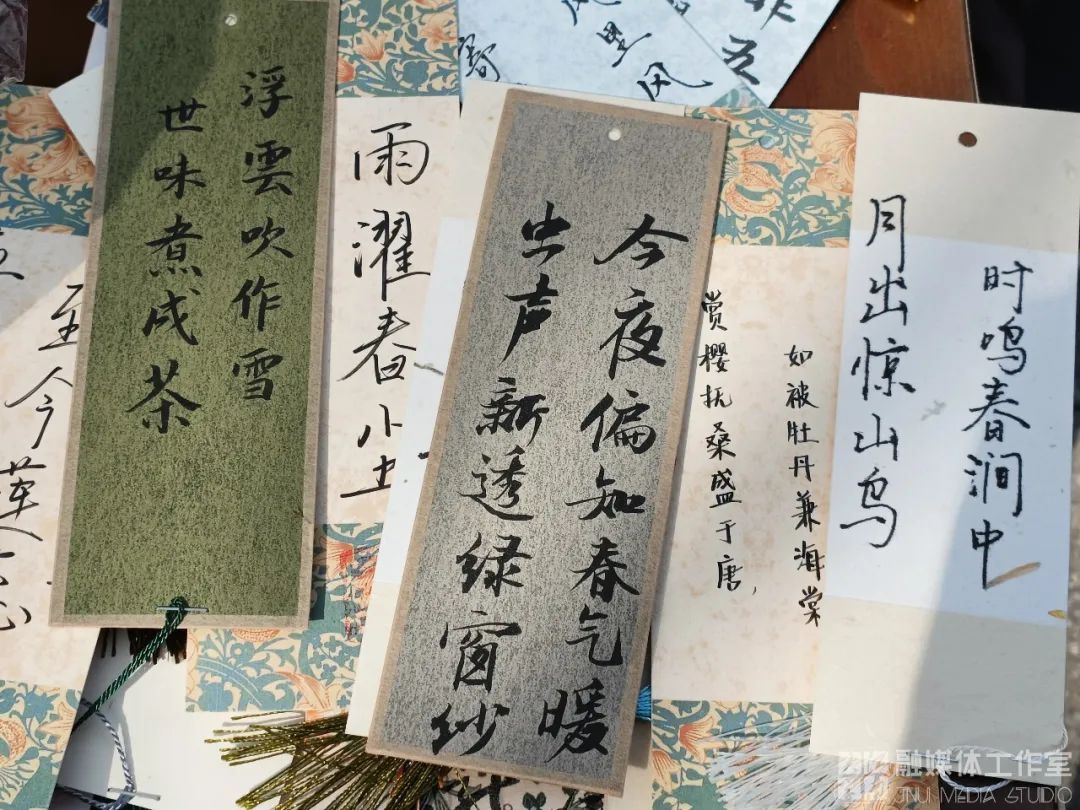 浮雲吹作雪
世味煮成茶
雨濯春尘
今夜偏知春气暖
虫声新透绿窗纱
赏樱抚桑盛于唐，
如被牡丹兼海棠
月出惊山鸟
时鸣春涧中
风里风
至今
融媒体工作室
JNU MEDIA STUDIO